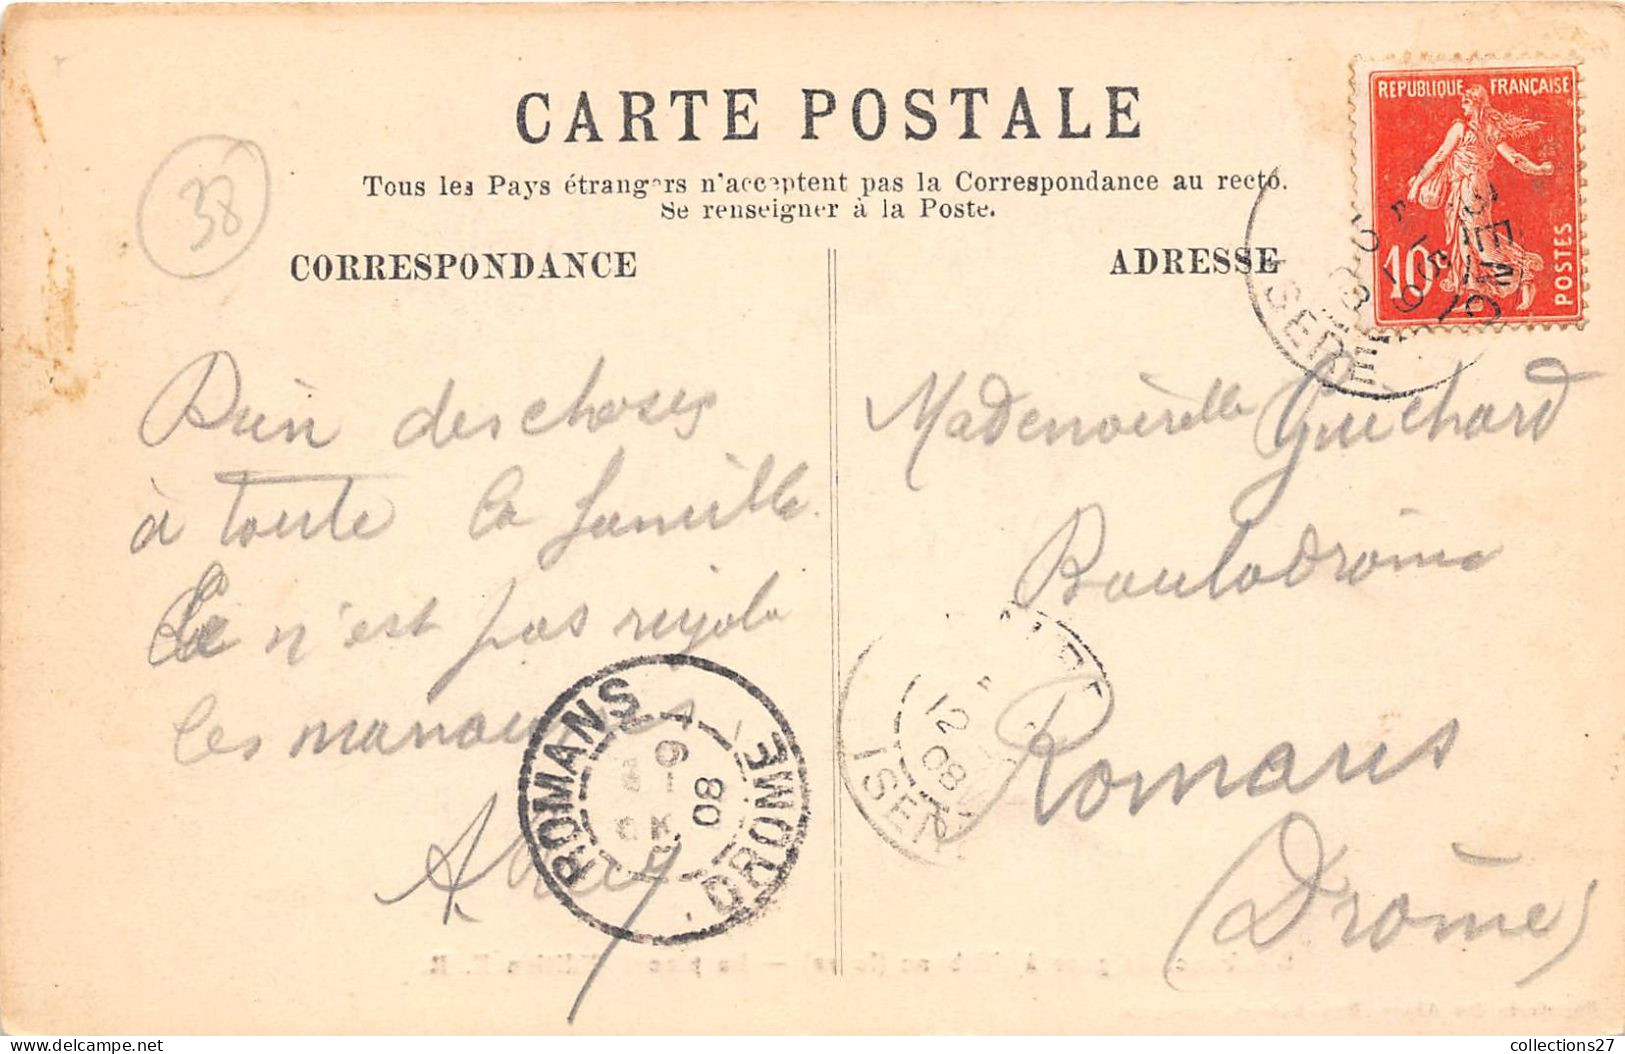 CARTE POSTALE
Tous les Pays étrangers n'acceptent pas la Correspondance au recto.
Se renseigner à la Poste.
38
CORRESPONDANCE
ADRESSE
REPUBLIQUE FRANÇAISE
10
POSTES
ISERE
Bien des choses
à toute la famille
Ce n'est pas rigolo
les manœuvres
Mademoiselle Guichard
Boulodrome
Romans
(Drôme)
ROMANS
DRÔME
9
08
ISERE
12
08
collections27